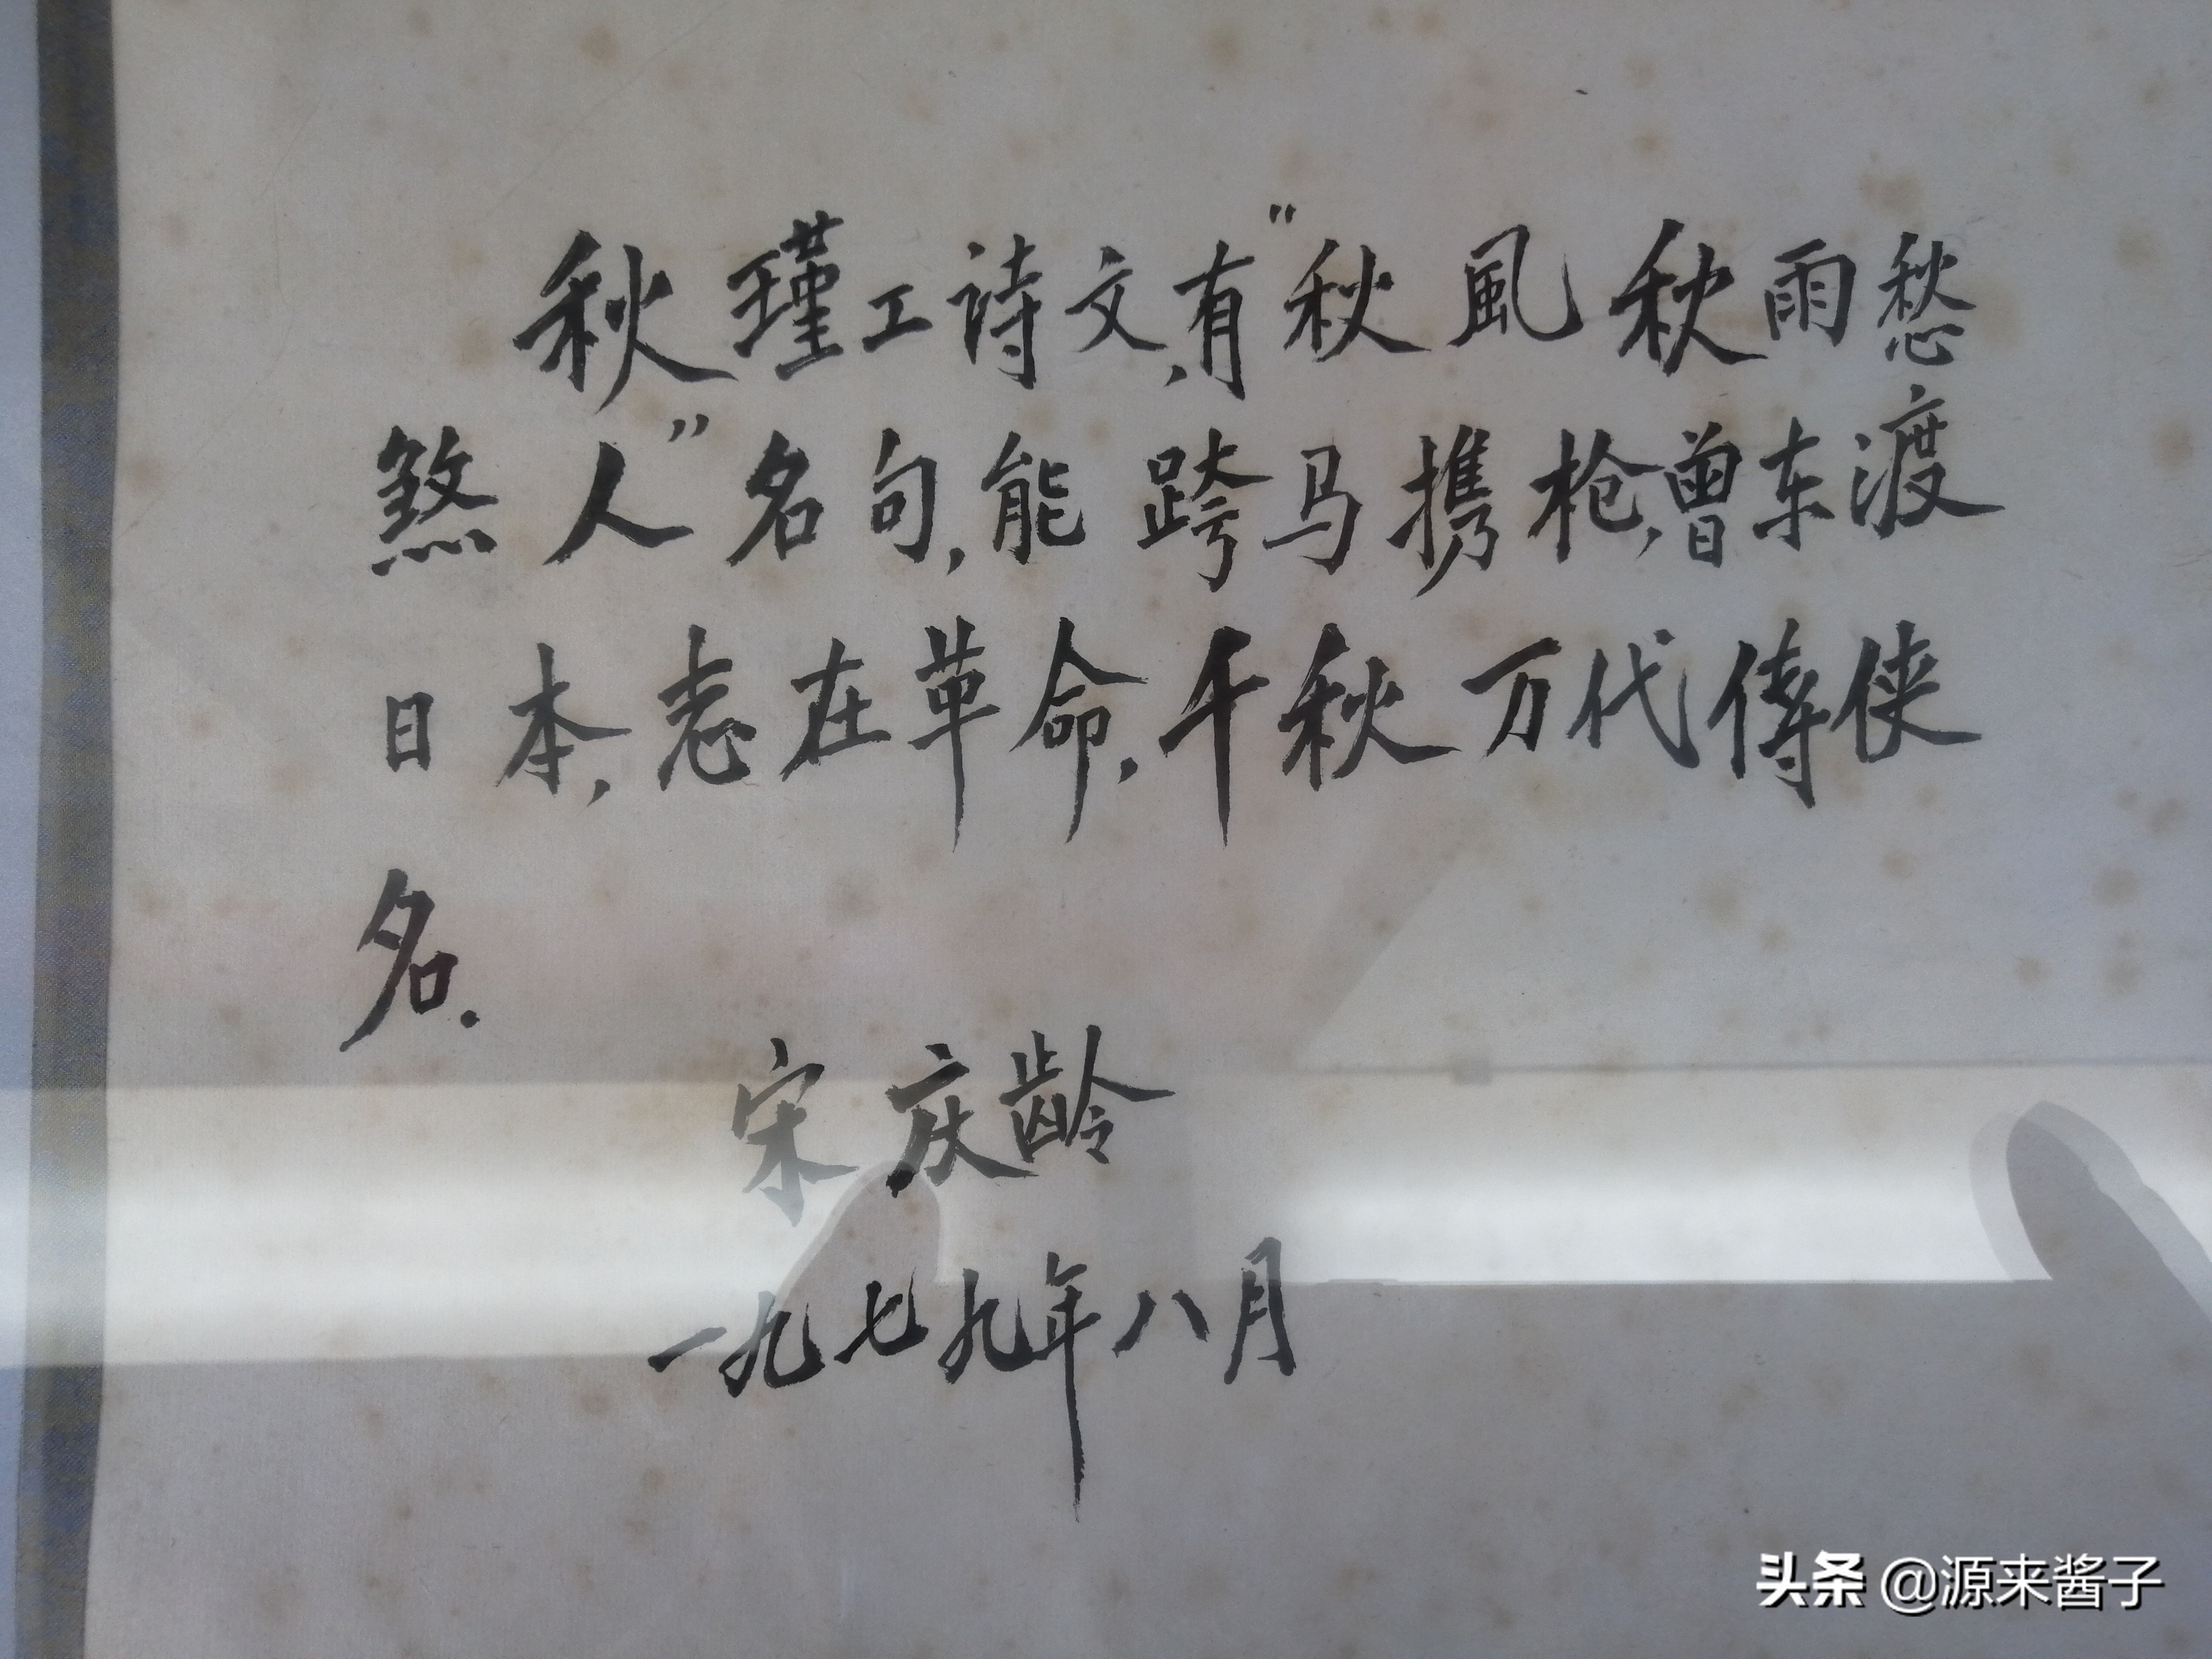 秋瑾工诗文,有"秋風秋雨愁
煞人"名句,能跨马携枪,曾东渡
日本,志在革命,千秋万代傳侠
名.
宋庆龄
一九七九年八月
头条 @源来酱子